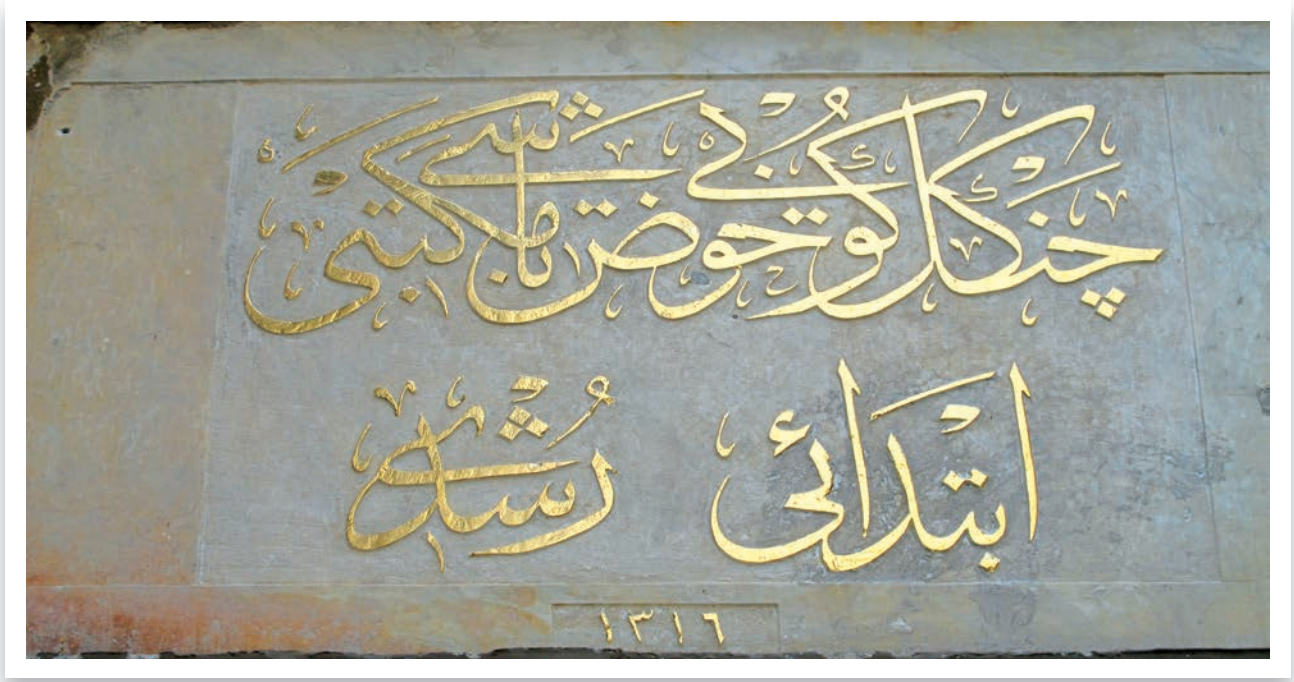 چنكل كوئى حوض باشى مكتبى
ابتدائى رشدى
١٣١٦